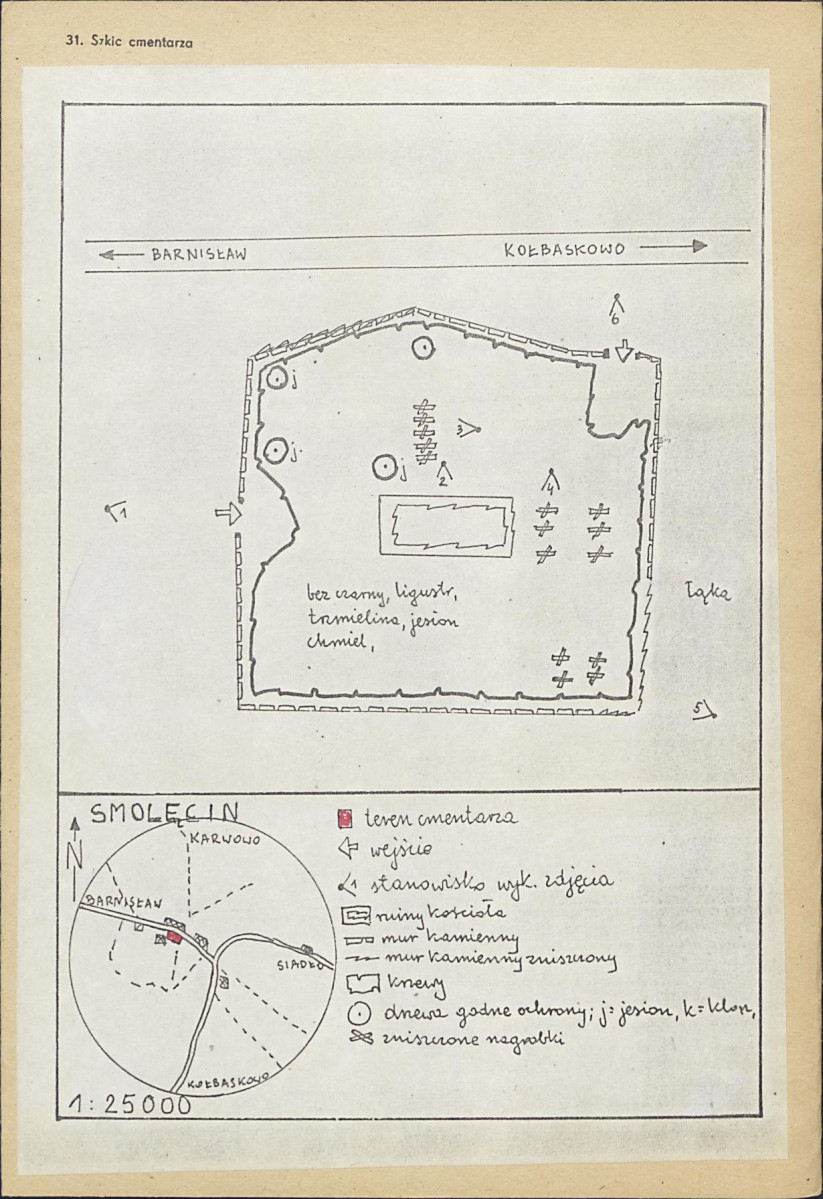 31. Szkic cmentarza
BARNISŁAW KOŁBASKOWO
6
j
3
j. j
2
4
1
bez czarny, ligustr,
trzmielina, jesion
chmiel,
Łąka
5
SMOLĘCIN
N
KARWOWO
BARNISŁAW
SIADŁO
KOŁBASKOWO
1:25000
teren cmentarza
wejście
1 stanowisko wyk. zdjęcia
ruiny kościoła
mur kamienny
mur kamienny zniszczony
krzewy
drzewa godne ochrony; j= jesion, k= klon,
zniszczone nagrobki